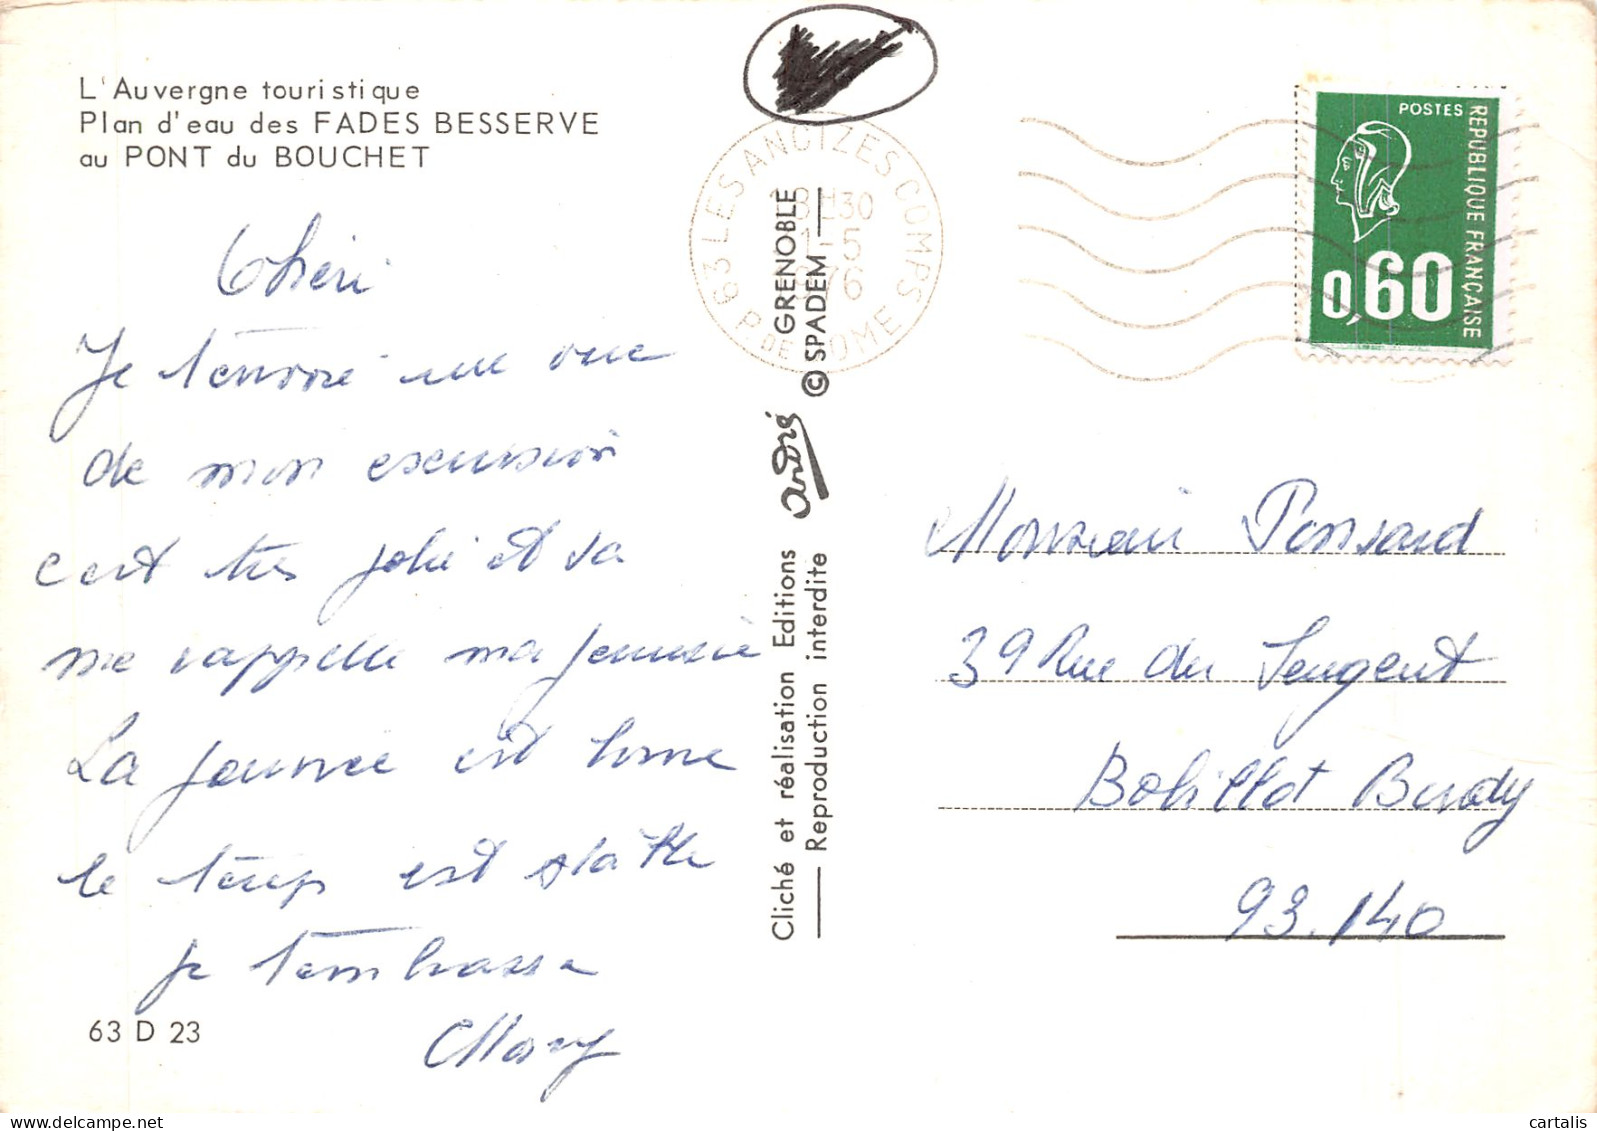 L'Auvergne touristique
Plan d'eau des FADES BESSERVE
au PONT du BOUCHET
Chéri
Je t'envoie une vue
de mon excursion
c'est très jolie et sa
me rappelle ma jeunesse
La journée est bonne
le temps est
je t'embrasse
Mary
63 D 23
63 LES ANCIZES COMPS
18H30
1-5
1976
P. DE DOME
GRENOBLE
© SPADEM
André
Cliché et réalisation Editions
Reproduction interdite
POSTES
REPUBLIQUE FRANÇAISE
0,60
Monsieur Ponsard
39 Rue du Sergent
Bobillot Bondy
93.140
cartalis